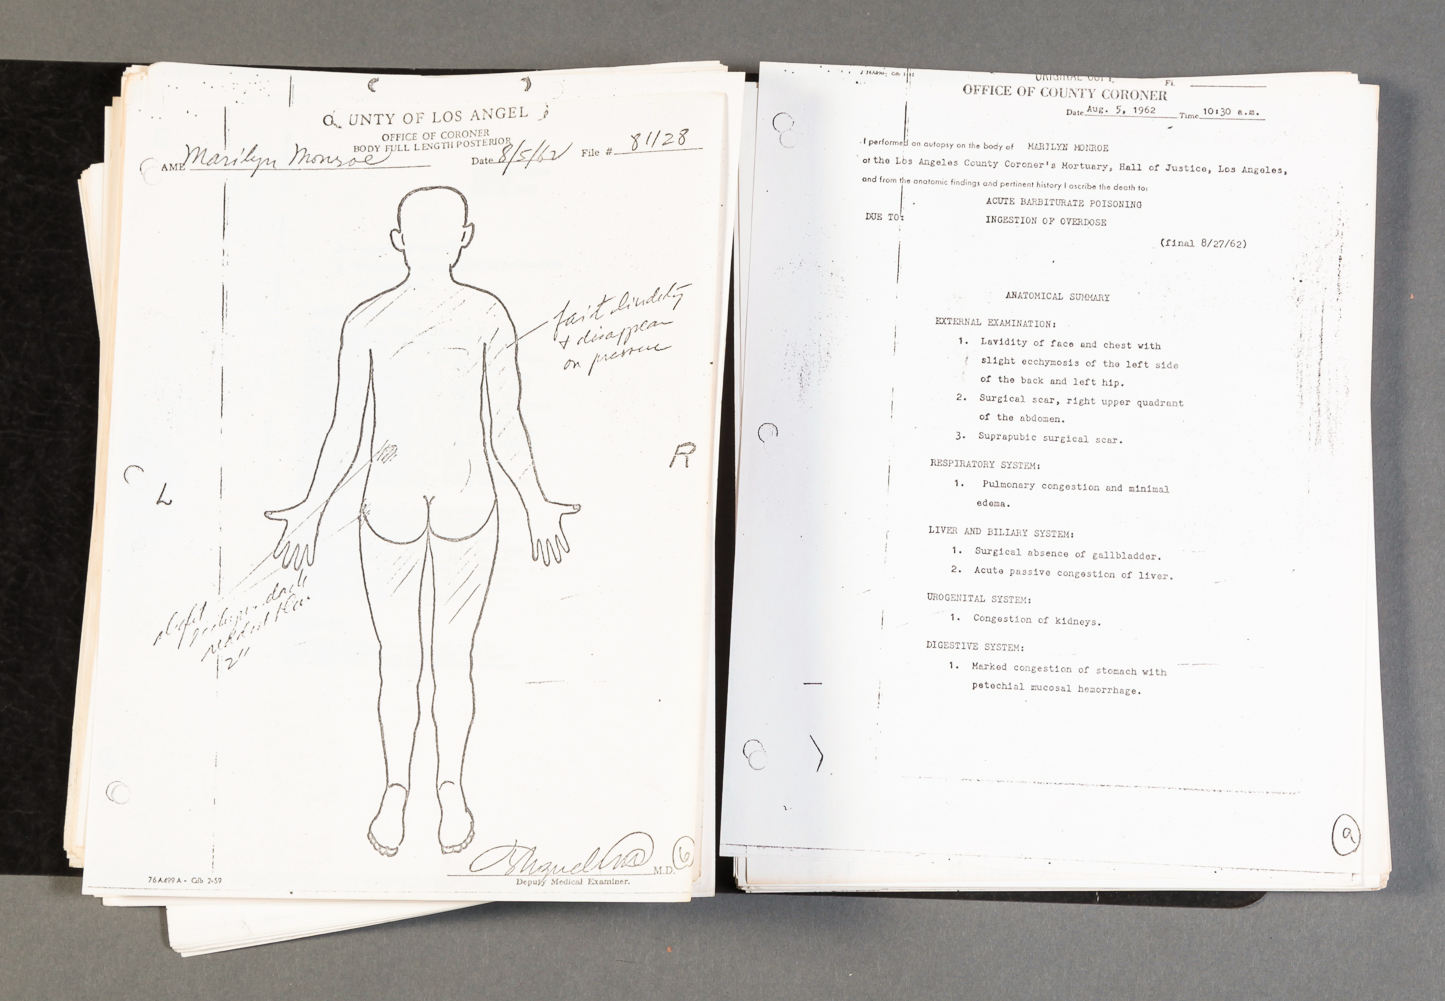 COUNTY OF LOS ANGEL
OFFICE OF CORONER
BODY FULL LENGTH POSTERIOR
AME Marilyn Monroe Date 8/5/62 File # 81128
faint lividity
+ disappear
on pressure
R
L
2"
M.D. 6
Deputy Medical Examiner.
76A499A - C/b 2-59
ORIGINAL COPY
OFFICE OF COUNTY CORONER
Date Aug. 5, 1962 Time 10:30 a.m.
I performed an autopsy on the body of MARILYN MONROE
at the Los Angeles County Coroner's Mortuary, Hall of Justice, Los Angeles,
and from the anatomic findings and pertinent history I ascribe the death to:
ACUTE BARBITURATE POISONING
DUE TO: INGESTION OF OVERDOSE
(final 8/27/62)
ANATOMICAL SUMMARY
EXTERNAL EXAMINATION:
1. Lavidity of face and chest with
slight ecchymosis of the left side
of the back and left hip.
2. Surgical scar, right upper quadrant
of the abdomen.
3. Suprapubic surgical scar.
RESPIRATORY SYSTEM:
1. Pulmonary congestion and minimal
edema.
LIVER AND BILIARY SYSTEM:
1. Surgical absence of gallbladder.
2. Acute passive congestion of liver.
UROGENITAL SYSTEM:
1. Congestion of kidneys.
DIGESTIVE SYSTEM:
1. Marked congestion of stomach with
petechial mucosal hemorrhage.
a